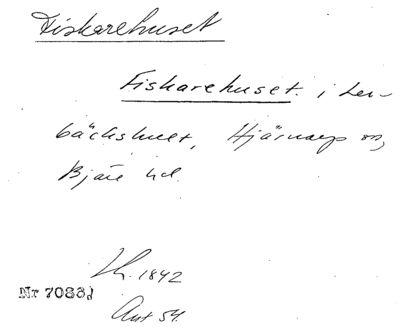 Fiskarehuset
Fiskarehuset. i Ler-
bäckshult, Hjärnarp sn,
Bjäre hd.
Lh. 1842
Nr 7088d
Ant 54.